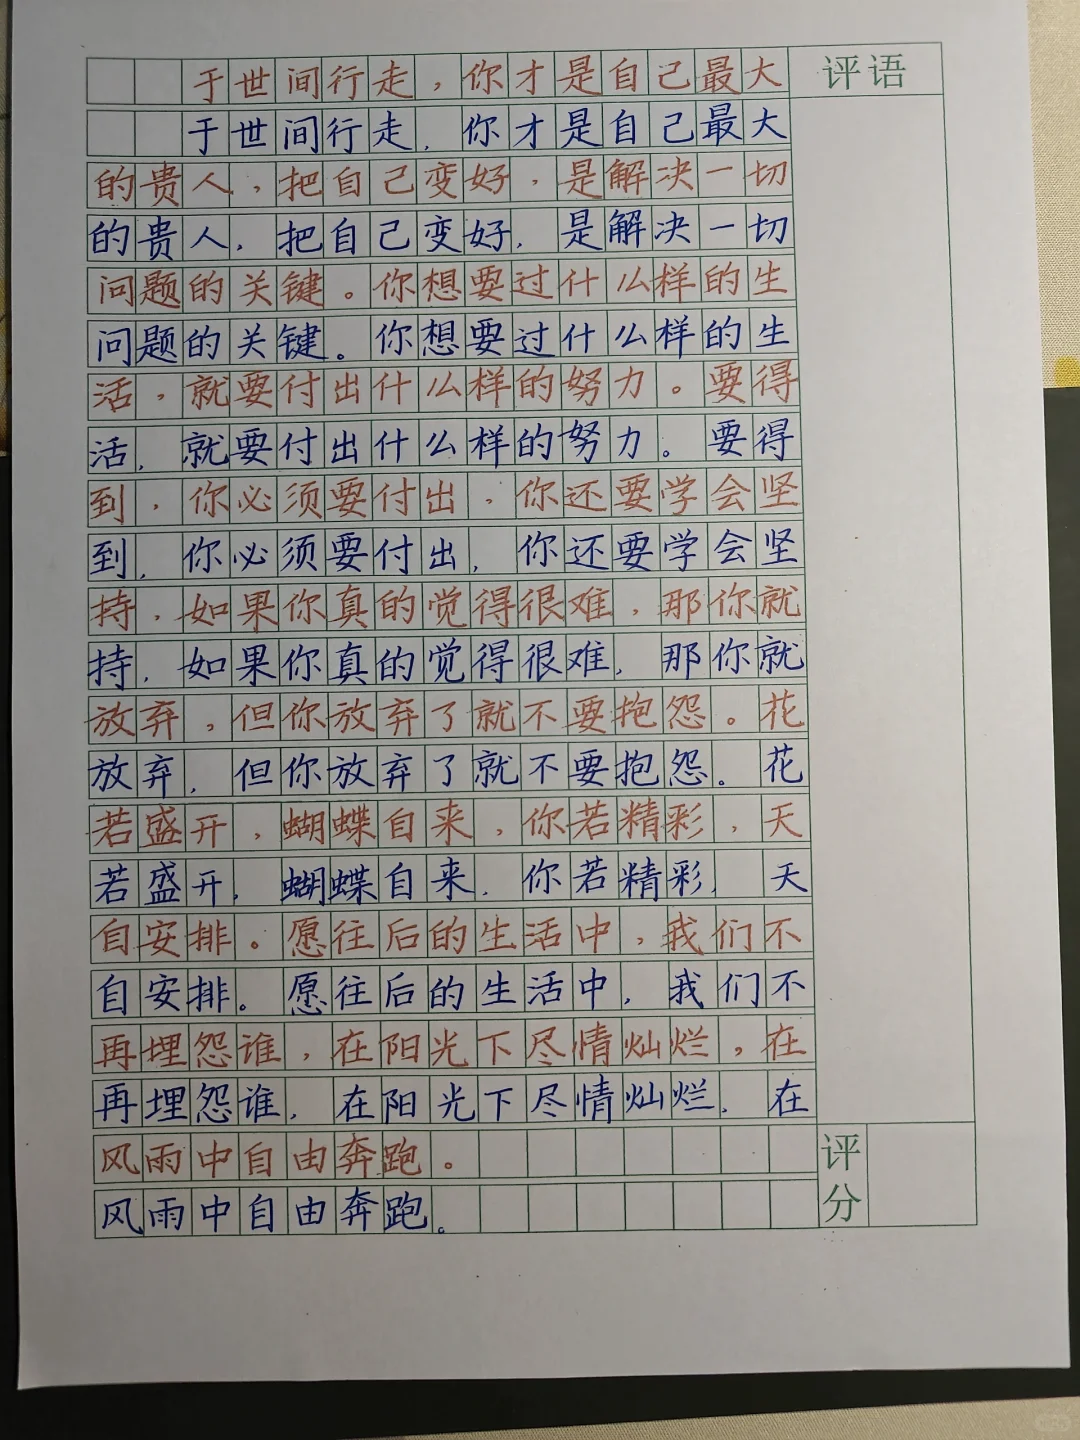 于世间行走，你才是自己最大 评语
于世间行走，你才是自己最大
的贵人，把自己变好，是解决一切
的贵人，把自己变好，是解决一切
问题的关键。你想要过什么样的生
问题的关键。你想要过什么样的生
活，就要付出什么样的努力。要得
活，就要付出什么样的努力。要得
到，你必须要付出，你还要学会坚
到，你必须要付出，你还要学会坚
持，如果你真的觉得很难，那你就
持，如果你真的觉得很难，那你就
放弃，但你放弃了就不要抱怨。花
放弃，但你放弃了就不要抱怨。花
若盛开，蝴蝶自来，你若精彩，天
若盛开，蝴蝶自来，你若精彩，天
自安排。愿往后的生活中，我们不
自安排。愿往后的生活中，我们不
再埋怨谁，在阳光下尽情灿烂，在
再埋怨谁，在阳光下尽情灿烂，在
风雨中自由奔跑。
风雨中自由奔跑。
评分